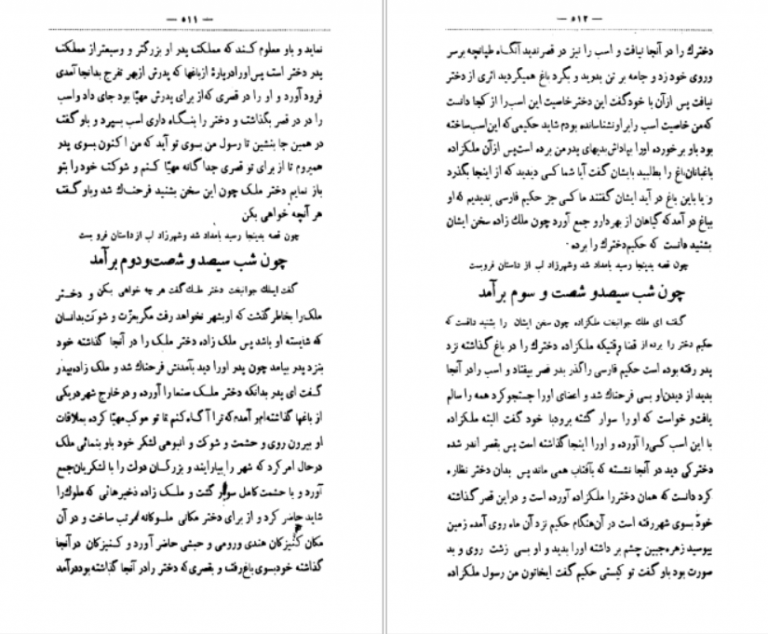 — ۵۱۱ —
نماید و باو معلوم کند که مملکت پدر او بزرگتر و وسیعتر از مملکت
پدر دختر است پس اورا درپارهٔ ازباغها که پدرش ازبهر تفرج بدانجا آمدی
فرود آورد و او را در قصری که از برای پدرش مهیّا بود جای داد واسب
را در در قصر بگذاشت و دختر را بنگاه داری اسب بسپرد و باو گفت
در همین جا بنشین تا رسول من بسوی تو آید که من اکنون بسوی پدر
همیروم تا از برای تو قصری جداگانه مهیّا کنم و شوکت خود را بتو
باز نمایم دختر ملک چون این سخن بشنید فرحناک شد و باو گفت
هر آنچه خواهی بکن
چون قصه بدینجا رسید بامداد شد و شهرزاد لب از داستان فرو بست
چون شب سیصدو شصت ودوم برآمد
گفت ایملک جوانبخت دختر ملک گفت هر چه خواهی بکن و دختر
ملک را بخاطر گذشت که اوبشهر نخواهد رفت مگر بعزت و شوکت بدانسان
که شایسته او باشد پس ملک زاده دختر ملک را در آنجا گذاشته خود
بنزد پدر بیامد چون پدر اورا دید بآمدنش فرحناک شد و ملک زاده بپدر
گفت ای پدر بدانکه دختر ملک صنعا را آورده و درخارج شهر در یکی
از باغها گذاشته ام و آمدم که ترا آگاه کنم تا تو موکب مهیّا کرده بملاقات
او بیرون روی و حشمت و شوکت و انبوهی لشکر خود باو بنمائی ملک
درحال امر کرد که شهر را بیارایند و بزرگان دولت را با لشکریان جمع
آورد و با حشمت کامل سوار گشت و ملک زاده ذخیرهائی که ملوک را
شاید حاضر کرد و از برای دختر مکانی ملوکانه مرتب ساخت و در آن
مکان کنیزکان هندی ورومی و حبشی حاضر آورد و کنیزکان درآنجا
گذاشته خودبسوی باغ رفت و بقصری که دختر رادر آنجا گذاشته بوددرآمد
— ۵۱۲ —
دخترک را در آنجا نیافت و اسب را نیز در قصر ندید آنگاه طپانچه برسر
وروی خود زد و جامه بر تن بدرید و بگرد باغ همیگردید اثری از دختر
نیافت پس ازآن با خود گفت این دختر خاصیت این اسب را از کجا دانست
که من خاصیت اسب را براو نشناسانده بودم شاید حکیمی که این اسب ساخته
بود باو برخورده اورا بپاداش بدیهای پدر من برده است پس ازآن ملکزاده
باغبانان باغ را بطلبید بایشان گفت آیا شما کسی دیدید که از اینجا بگذرد
و یا باین باغ در آید ایشان گفتند ما کسی جز حکیم فارسی ندیدیم که او
بباغ در آمد که گیاهان از بهر دارو جمع آورد چون ملک زاده سخن ایشان
بشنید دانست که حکیم دخترک را برده .
چون قصه بدینجا رسید بامداد شد وشهرزاد لب از داستان فروبست
چون شب سیصدو شصت و سوم برآمد
گفت ای ملک جوانبخت ملکزاده چون سخن ایشان را بشنید دانست که
حکیم دختر را برده از قضا وقتیکه ملکزاده دخترک را در باغ گذاشته نزد
پدر رفته بوده است حکیم فارسی را گذر بدر قصر بیفتاد و اسب را در آنجا
بدید از دیدن او بسی فرحناک شد و اعضای اورا جستجو کرد همه را سالم
یافت و خواست که او را سوار گشته برود با خود گفت البته ملکزاده
با این اسب کسی را آورده و اورا اینجا گذاشته است پس بقصر اندر شده
دخترکی دید در آنجا نشسته که بآفتاب همی ماند پس بدان دختر نظاره
کرد دانست که همان دختر را ملکزاده آورده است و دراین قصر گذاشته
خود بسوی شهر رفته است در آن هنگام حکیم نزد آن ماه روی آمده زمین
ببوسید زهره جبین چشم بر داشته اورا بدید و او بسی زشت روی و بد
صورت بود باو گفت تو کیستی حکیم گفت ایخاتون من رسول ملکزاده